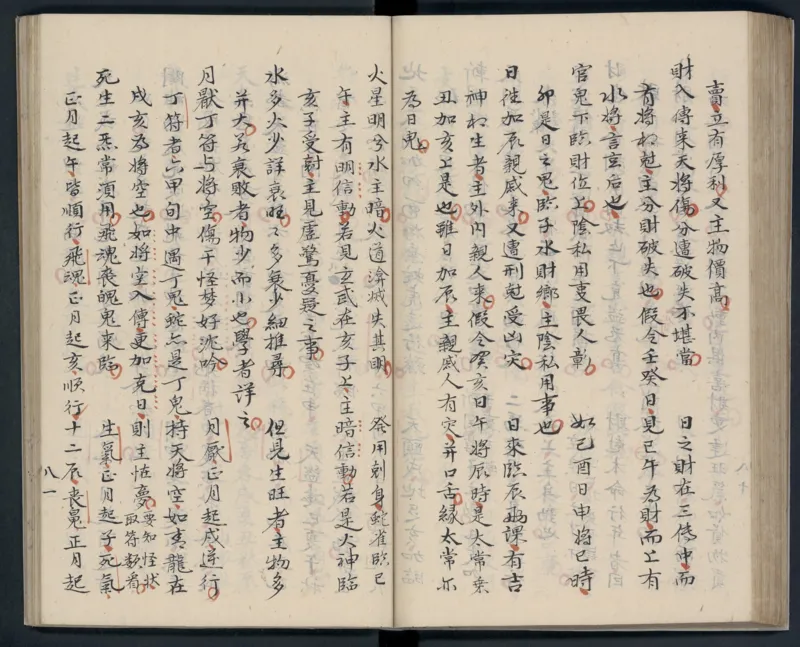 賣立有厚利又主物價高
財入傳來天將傷分遭破失不堪當　日之財在三傳中而
有將相尅主分財破失也假令壬癸日見巳午為財而上有
水將言玄后也
官鬼下臨財位上陰私用事畏人彰　如己酉日申將巳時
卯是日之鬼臨子水財鄉主陰私用事也
日徃加辰親戚來又遭刑尅受凶灾　日來臨辰為課有吉
神相生者主外內親人來假令癸亥日午將辰時是太常乗
丑加亥上是也雖日加辰主親戚人有灾并口舌緣太常亦
為日鬼
火星明兮水主暗火道淪滅失其明　發用刻身蛇雀臨巳
午主有明信動若見玄武在亥子上主暗信動若是火神臨
亥子受尅主見虛驚憂疑之事
水多火少詳衰旺之多無少細推尋　但見生旺者主物多
并大若衰敗者物少而小也學者詳之
月厭丁符与將空傷干怪梦好沈吟　月厭正月起戌逆行
丁符者六甲旬中遇丁鬼蛇六是丁鬼持天將空如青龍在
戌亥為將空也如將空入傳更加克日則主怪夢要知怪狀取符類看
死生二炁常須用飛魂喪魄鬼來臨　生氣正月起子死氣
正月起午皆順行飛魂正月起亥順行十二辰喪鬼正月起
八一